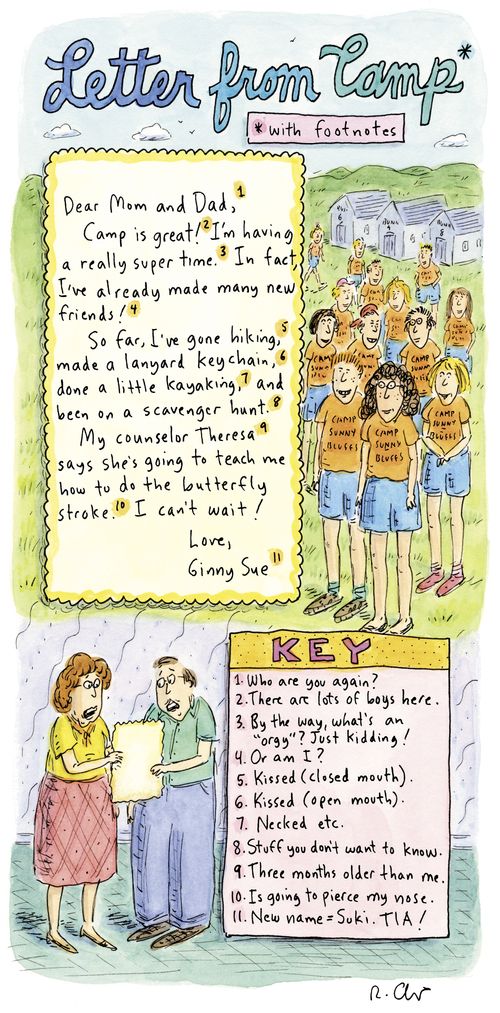 Letter from Camp*
*with footnotes
Dear Mom and Dad,1
Camp is great!2 I'm having
a really super time.3 In fact,
I've already made many new
friends!4
So far, I've gone hiking,5
made a lanyard keychain,6
done a little kayaking,7 and
been on a scavenger hunt.8
My counselor Theresa9
says she's going to teach me
how to do the butterfly
stroke.10 I can't wait!
Love,
Ginny Sue11
BUNK
8
CAMP
SUNNY
BLUFFS
CAMP
SUNNY
BLUFFS
CAMP
SUNNY
BLUFFS
KEY
1. Who are you again?
2. There are lots of boys here.
3. By the way, what's an
"orgy"? Just kidding!
4. Or am I?
5. Kissed (closed mouth).
6. Kissed (open mouth).
7. Necked etc.
8. Stuff you don't want to know.
9. Three months older than me.
10. Is going to pierce my nose.
11. New name = Suki. TIA!